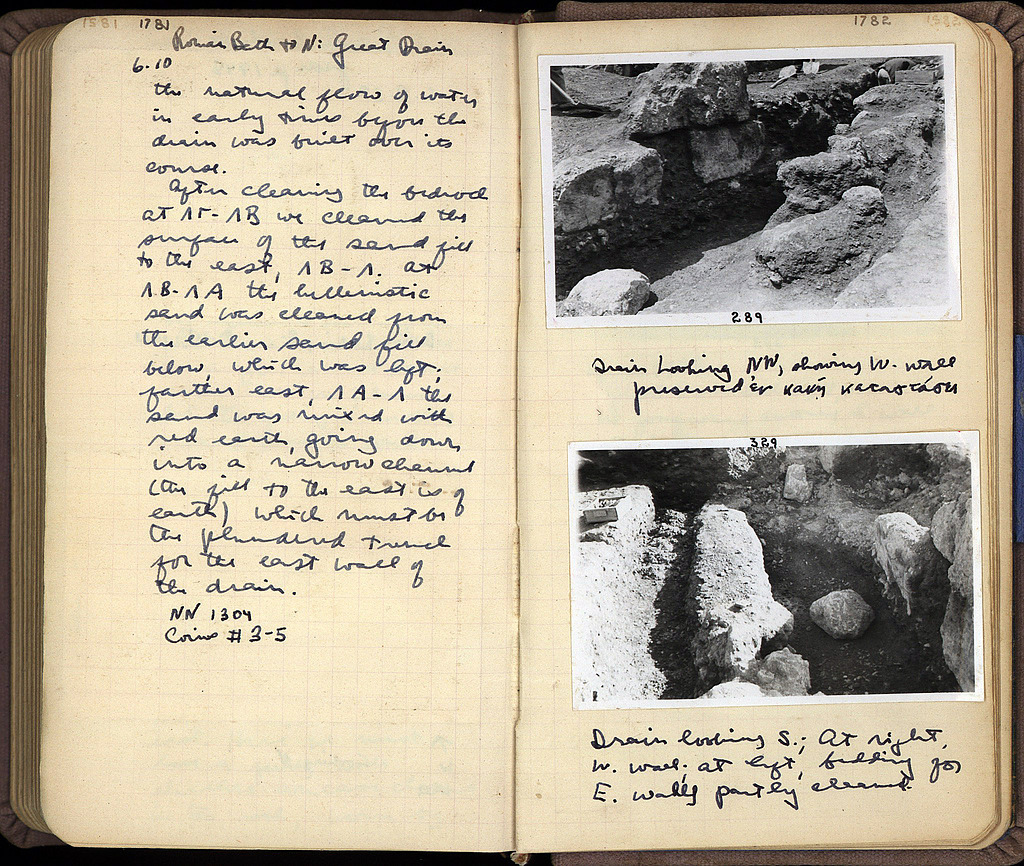 1581 1781
Roman Bath to N: Great Drain
6.10
the natural flow of water
in early times before the
drain was built over its
course.
After cleaning the bedrock
at ΛΓ-ΛΒ we cleaned the
surface of the sand fill
to the east, ΛΒ-Λ. at
ΛΒ-ΛΑ the hellenistic
sand was cleaned from
the earlier sand fill
below, which was left;
farther east, ΛΑ-Λ the
sand was mixed with
red earth, going down
into a narrow channel
(the fill to the east is of
earth) which must be
the plundered trench
for the east wall of
the drain.
NN 1304
Coins # 3-5
1782 1582
289
Drain Looking NW, showing W. wall
preserved ἐν κακῇ καταστάσει
329
Drain looking S.; At right,
W. wall; at left, bedding for
E. wall, partly cleaned.